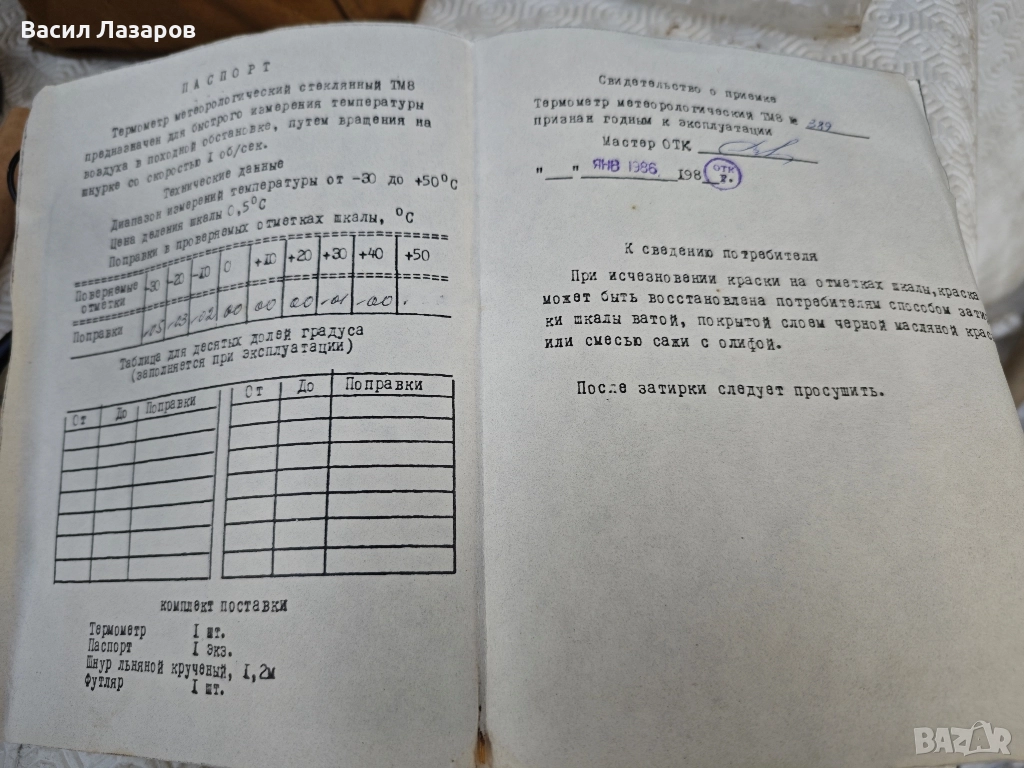 Васил Лазаров
ПАСПОРТ
Термометр метеорологический стеклянный ТМ8
предназначен для быстрого измерения температуры
воздуха в походной обстановке, путем вращения на
шнурке со скоростью I об/сек.
Технические данные
Диапазон измерений температуры от -30 до +50°С
Цена деления шкалы 0,5°С
Поправки в проверяемых отметках шкалы, °С
Поверяемые отметки -30 -20 -10 0 +10 +20 +30 +40 +50
Поправки -0,5 -0,3 -0,2 0,0 0,0 0,0 -0,1 -0,0
Таблица для десятых долей градуса
(заполняется при эксплуатации)
От До Поправки От До Поправки
комплект поставки
Термометр I шт.
Паспорт I экз.
Шнур льняной крученый, I,2м
Футляр I шт.
Свидетельство о приемке
Термометр метеорологический ТМ8 № 389
признан годным к эксплуатации
Мастер ОТК
"___" ЯНВ 1986 198 ОТК
К сведению потребителя
При исчезновении краски на отметках шкалы, краска
может быть восстановлена потребителям способом зати
ки шкалы ватой, покрытой слоем черной масляной крас
или смесью сажи с олифой.
После затирки следует просушить.
BAZAR